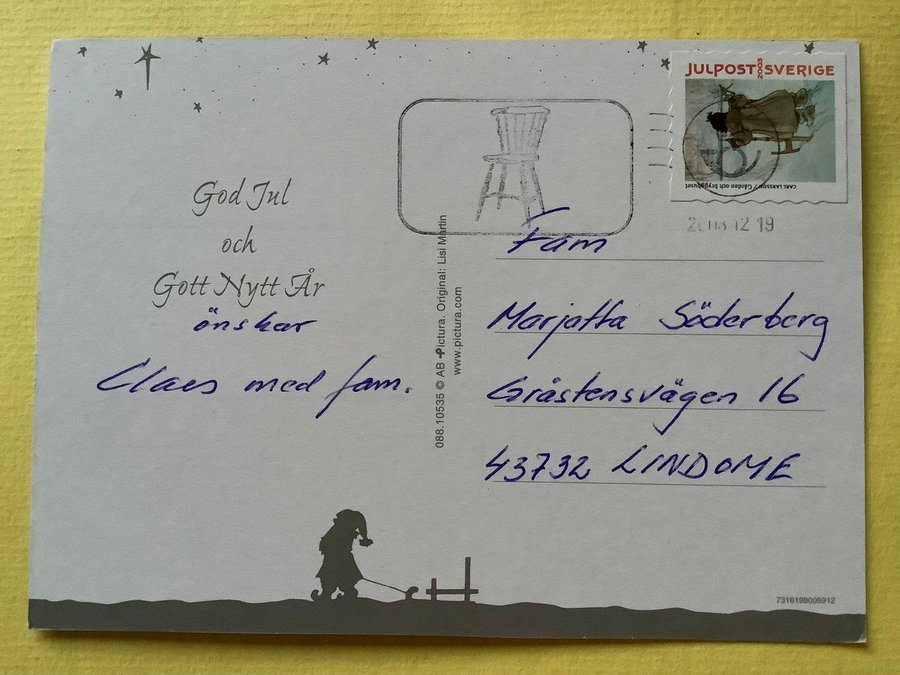 God Jul
och
Gott Nytt År
önskar
Claes med fam.
088.10535 © AB Pictura. Original: Lisi Martin
www.pictura.com
JULPOST 2003 SVERIGE
CARL LARSSON / Gården och brygghuset
12 19
Fam
Marjatta Söderberg
Gråstensvägen 16
43732 LINDOME
7316198005912